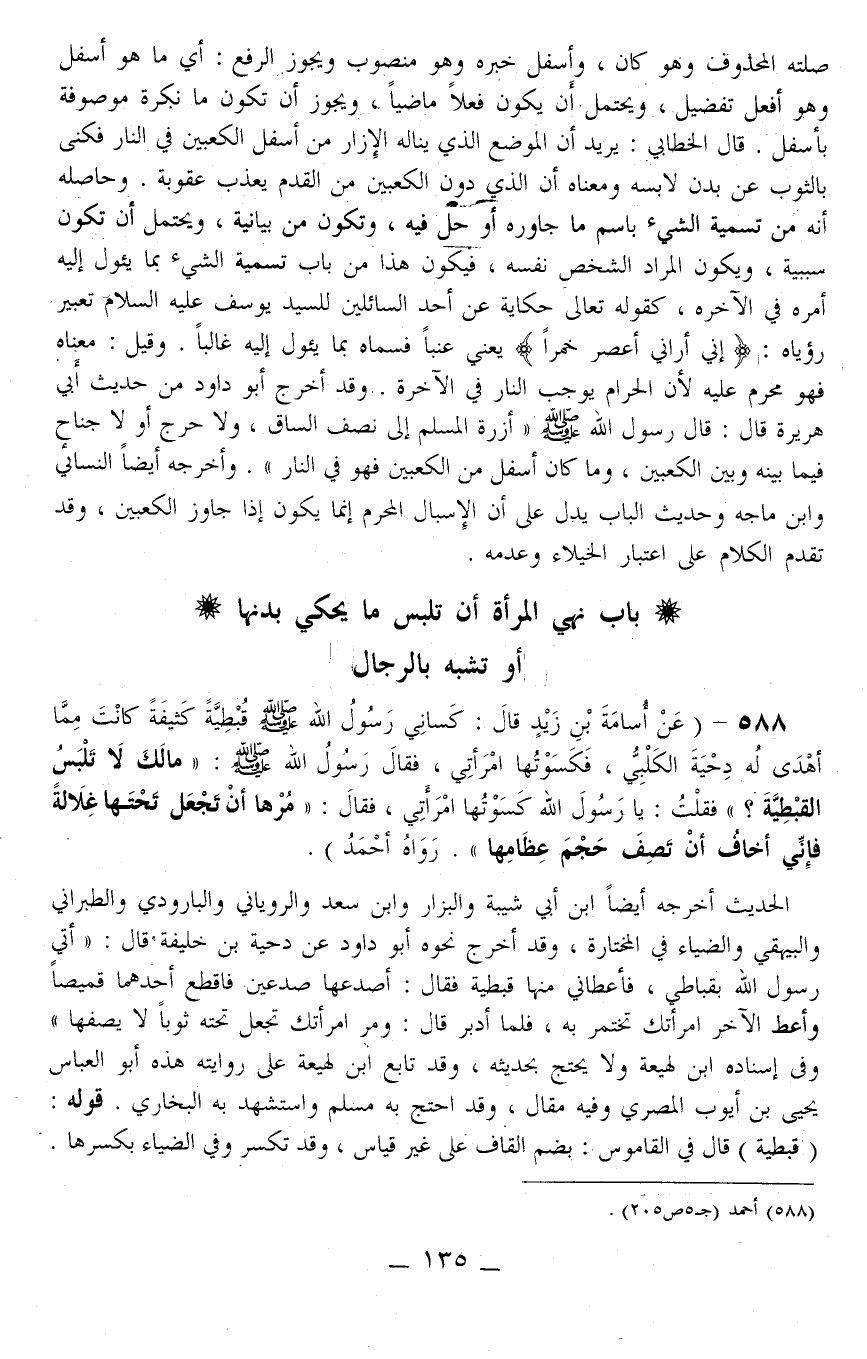 صلته المحذوف وهو كان ، وأسفل خبره وهو منصوب ويجوز الرفع : أي ما هو أسفل
وهو أفعل تفضيل ، ويحتمل أن يكون فعلاً ماضياً ، ويجوز أن تكون ما نكرة موصوفة
بأسفل . قال الخطابي : يريد أن الموضع الذي يناله الإزار من أسفل الكعبين في النار فكنى
بالثوب عن بدن لابسه ومعناه أن الذي دون الكعبين من القدم يعذب عقوبة . وحاصله
أنه من تسمية الشيء باسم ما جاوره أو حل فيه ، وتكون من بيانية ، ويحتمل أن تكون
سببية ، ويكون المراد الشخص نفسه ، فيكون هذا من باب تسمية الشيء بما يئول إليه
أمره في الآخره ، كقوله تعالى حكاية عن أحد السائلين للسيد يوسف عليه السلام تعبير
رؤياه : ﴿ إني أراني أعصر خمراً ﴾ يعني عنباً فسماه بما يئول إليه غالباً . وقيل : معناه
فهو محرم عليه لأن الحرام يوجب النار في الآخرة . وقد أخرج أبو داود من حديث أبي
هريرة قال : قال رسول الله ﷺ « أزرة المسلم إلى نصف الساق ، ولا حرج أو لا جناح
فيما بينه وبين الكعبين ، وما كان أسفل من الكعبين فهو في النار » . وأخرجه أيضاً النسائي
وابن ماجه وحديث الباب يدل على أن الإسبال المحرم إنما يكون إذا جاوز الكعبين ، وقد
تقدم الكلام على اعتبار الخيلاء وعدمه .
باب نهي المرأة أن تلبس ما يحكي بدنها
أو تشبه بالرجال
٥٨٨ – ( عَنْ أُسامَةَ بْنِ زَيْدٍ قالَ : كَسانِي رَسُولُ الله ﷺ قُبْطِيَّةً كَثيفَةً كانَتْ مِمَّا
أهْدَى لُه دِحْيَةَ الكَلْبِيُّ ، فَكَسَوْتُها امْرَأتِي ، فقالَ رَسُولُ الله ﷺ : « مالَكَ لَا تَلْبَسُ
القبْطِيَّةَ ؟ » فقلْتُ : يا رَسُولَ الله كَسَوْتُها امْرَأَتِي ، فقالَ : « مُرْها أنْ تَجْعَل تَحْتَها غِلَالَةً
فإنِّي أخافُ أنْ تَصِفَ حَجْمَ عِظَامِها » . رَوَاهُ أحْمَدُ ) .
الحديث أخرجه أيضاً ابن أبي شيبة والبزار وابن سعد والروياني والبارودي والطبراني
والبيهقي والضياء في المختارة ، وقد أخرج نحوه أبو داود عن دحية بن خليفة قال : « أتي
رسول الله بقباطي ، فأعطاني منها قبطية فقال : أصدعها صدعين فاقطع أحدهما قميصاً
وأعط الآخر امرأتك تختمر به ، فلما أدبر قال : ومر امرأتك تجعل تحته ثوباً لا يصفها »
وفى إسناده ابن لهيعة ولا يحتج بحديثه ، وقد تابع ابن لهيعة على روايته هذه أبو العباس
يحيى بن أيوب المصري وفيه مقال ، وقد احتج به مسلم واستشهد به البخاري . قوله :
( قبطية ) قال في القاموس : بضم القاف على غير قياس ، وقد تكسر وفي الضياء بكسرها .
(٥٨٨) أحمد (جـ٥ص٢٠٥) .
– ١٣٥ –